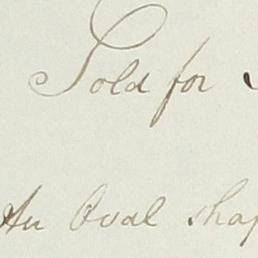 Sold for
An Oval shap